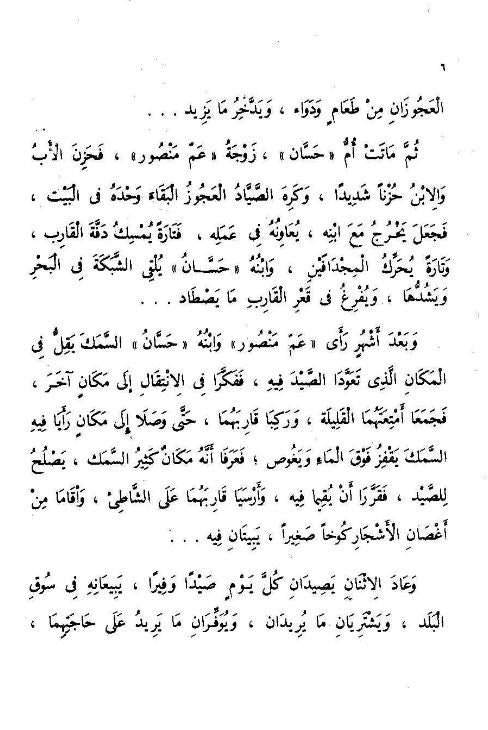 ٦
الْعَجُوزَانِ مِنْ طَعَامٍ وَدَوَاء ، وَيَدَّخِرُ مَا يَزِيد . . .
ثُمَّ مَاتَتْ أُمُّ «حَسَّان» ، زَوْجَةُ «عَمّ مَنْصُور» ، فَحَزِنَ الْأَبُ
وَالِابْنُ حُزْناً شَدِيدًا ، وَكَرِهَ الصَّيَّادُ الْعَجُوزُ الْبَقَاءَ وَحْدَهُ فِى الْبَيْت ،
فَجَعَلَ يَخْرُجُ مَعَ ابْنِهِ ، يُعَاوِنُهُ فِى عَمَلِهِ ، فَتَارَةً يُمْسِكُ دَفَّةَ الْقَارِب ،
وَتَارَةً يُحَرِّكُ الْمِجْدَافَيْنِ ، وَابْنُهُ «حَسَّـانُ» يُلْقِى الشَّبَكَةَ فِى الْبَحْرِ
وَيَشُدُّهَا ، وَيُفْرِغُ فِى قَعْرِ الْقَارِبِ مَا يَصْطَاد . . .
وَبَعْدَ أَشْهُرٍ رَأَى «عَمّ مَنْصُور» وَابْنُهُ «حَسَّانُ» السَّمَكَ يَقِلُّ فِى
الْمَكَانِ الَّذِى تَعَوَّدَا الصَّيْدَ فِيهِ ، فَفَكَّرَا فِى الِانْتِقَالِ إِلَى مَكَانٍ آخَرَ ،
فَجَمَعَا أَمْتِعَتَهُمَا الْقَلِيلَةَ ، وَرَكِبَا قَارِبَهُمَا ، حَتَّى وَصَلَا إِلَى مَكَانٍ رَأَيَا فِيهِ
السَّمَكَ يَقْفِزُ فَوْقَ الْمَاءِ وَيَغُوص ؛ فَعَرَفَا أَنَّهُ مَكَانٌ كَثِيرُ السَّمَك ، يَصْلُحُ
لِلصَّيْد ، فَقَرَّرَا أَنْ يُقِيمَا فِيه ، وَأَرْسَيَا قَارِبَهُمَا عَلَى الشَّاطِئ ، وَأَقَامَا مِنْ
أَغْصَانِ الْأَشْجَارِ كُوخاً صَغِيراً ، يَبِيتَانِ فِيه . . .
وَعَادَ الِاثْنَانِ يَصِيدَانِ كُلَّ يَـوْمٍ صَيْدًا وَفِيرًا ، يَبِيعَانِهِ فِى سُوقِ
الْبَلَد ، وَيَشْتَرِيَانِ مَا يُرِيدَان ، وَيُوَفِّرَانِ مَا يَزِيدُ عَلَى حَاجَتِهِمَا ،